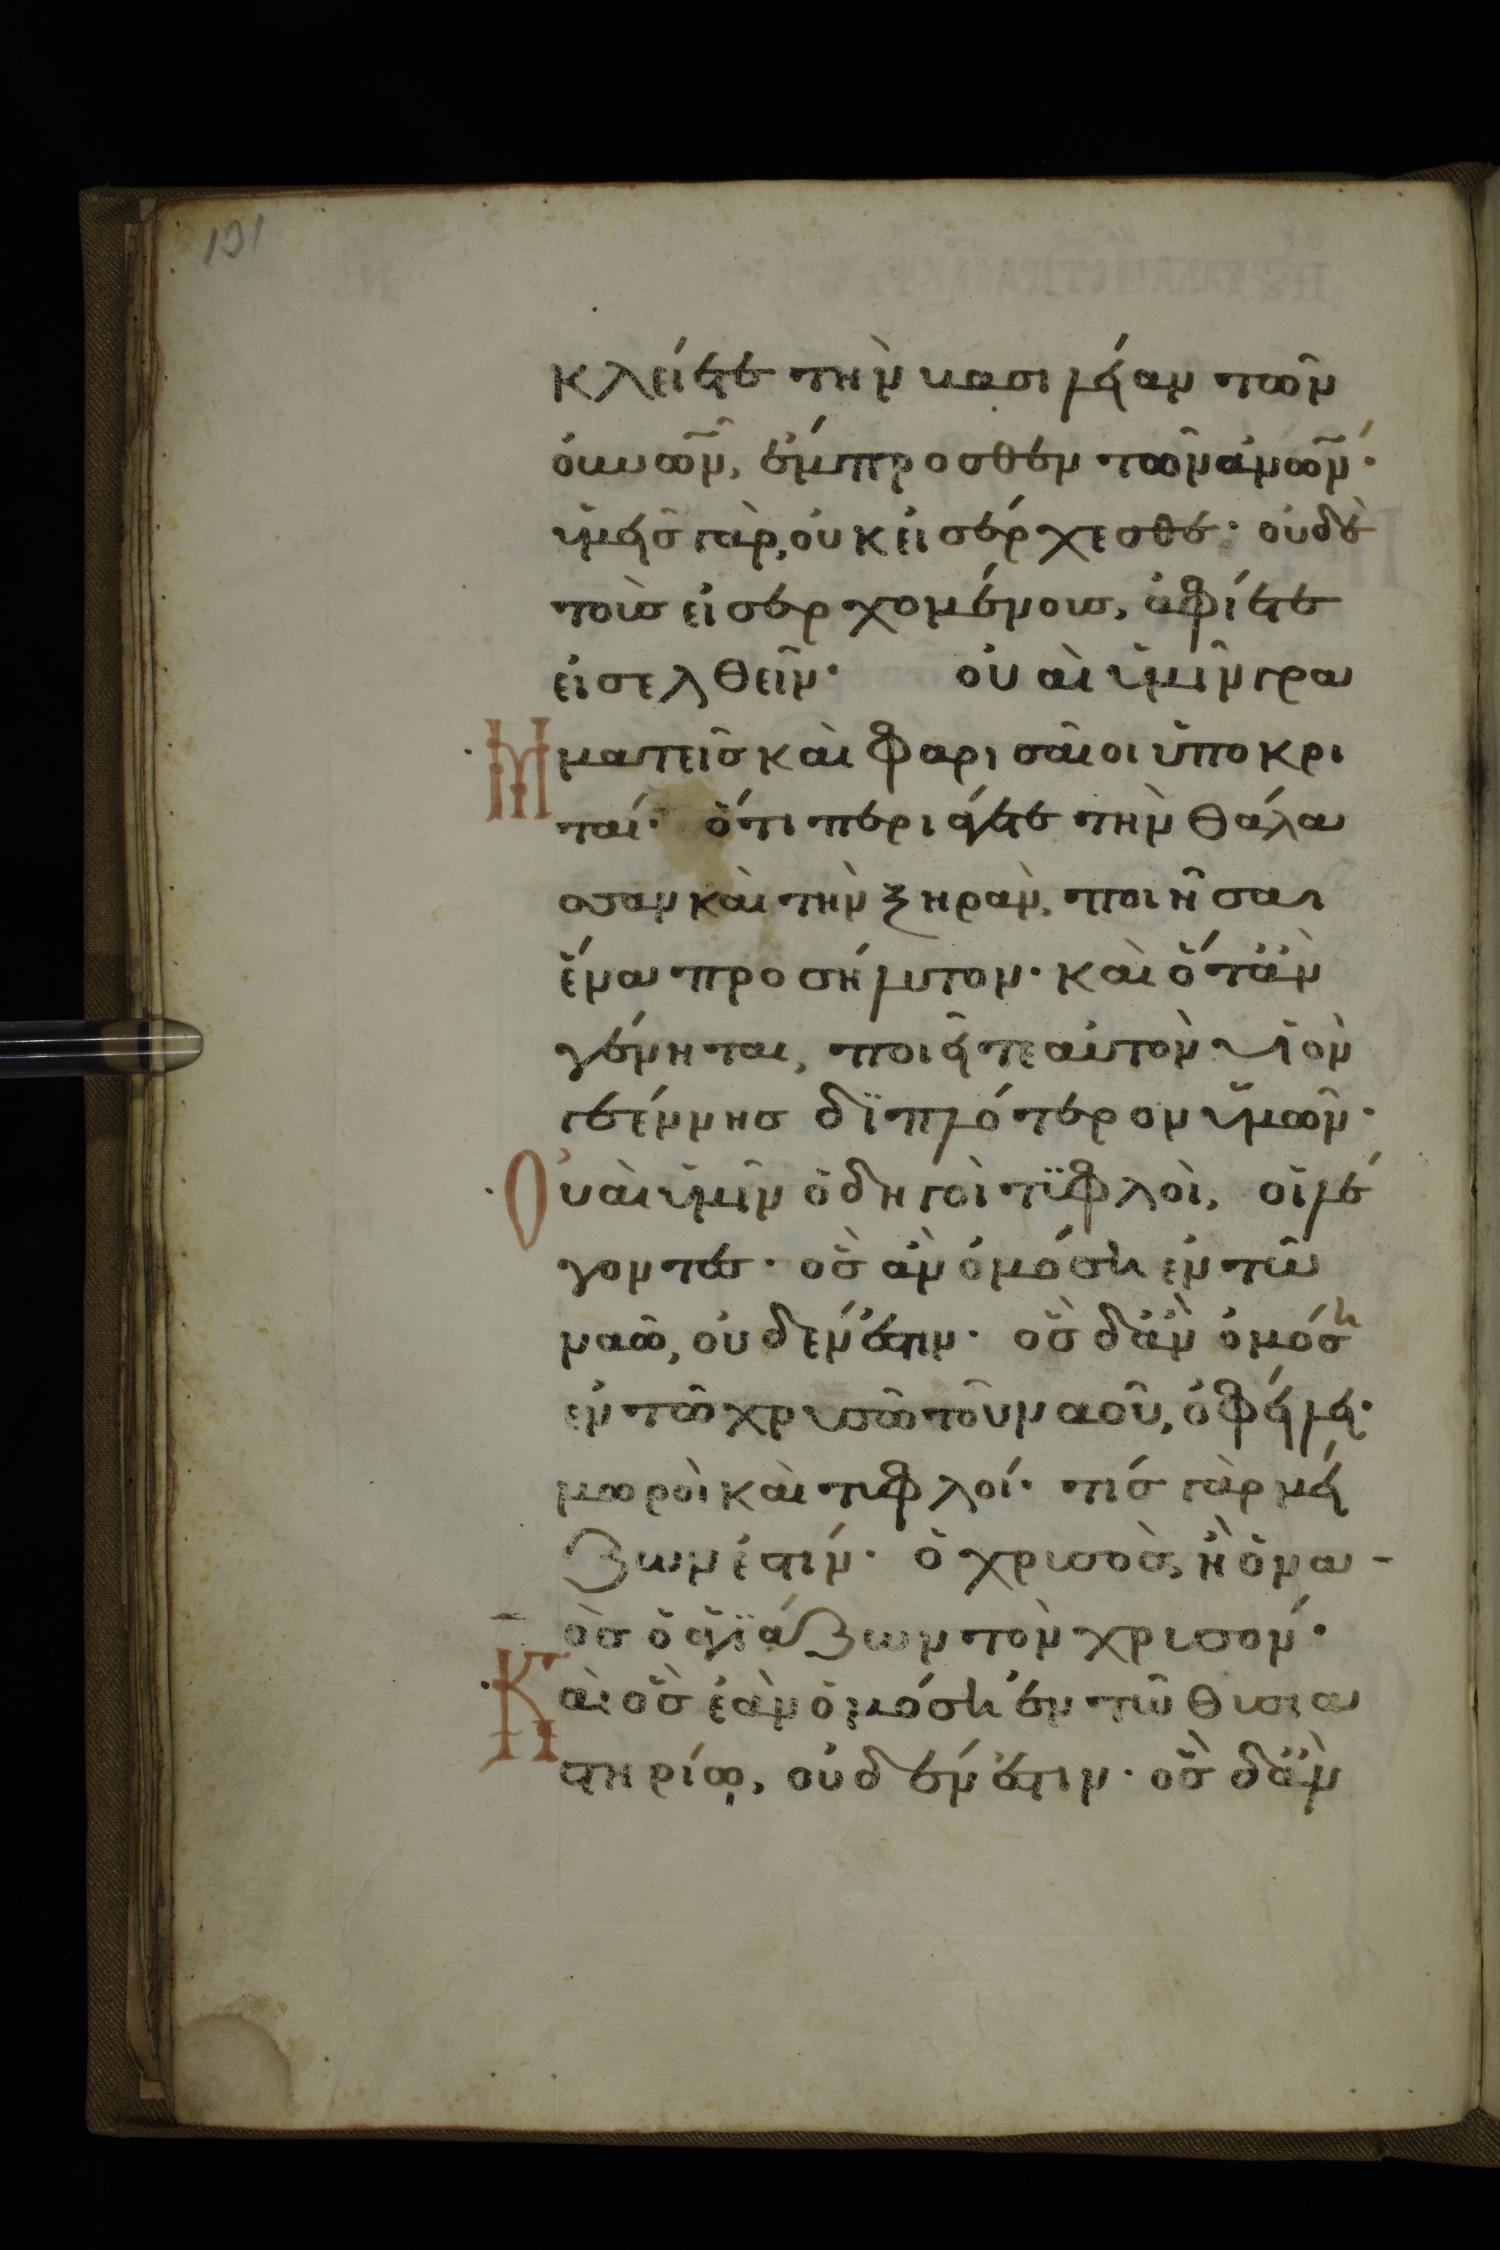 101
κλείετε τὴν βασιλείαν τῶν
οὐν͞ῶν, ἔμπροσθεν τῶν ἀν͞ῶν·
ὑμεῖς γὰρ, οὐκ εἰσέρχεσθέ· οὐδὲ
τοὺς εἰσερχομένους, ἀφίετε
εἰσελθεῖν· οὐαὶ ὑμῖν γρα
μματεῖς καὶ φαρισαῖοι ὑποκρι
ταί· ὅτι περιάγετε τὴν θάλα
σσαν καὶ τὴν ξηρὰν, ποιῆσαι
ἕνα προσήλυτον· καὶ ὅτἂν
γένηται, ποιεῖτε αὐτὸν υἱὸν
γεέννης διπλότερον ὑμῶν·
Οὐαὶ ὑμῖν ὁδηγοὶ τϋφλοὶ, οἱ λέ
γοντες· ὃς ἂν ὀμόση ἐν τῶ
ναῶ, οὐδέν ἐστιν· ὃς δ' ἂν ὀμόση
ἐν τῶ χρυσῶ τοῦ ναοῦ, ὀφείλει·
μωροὶ καὶ τυφλοί· τίς γὰρ μεί
ζων ἐστίν· ὁ χρυσὸς, ἢ ὁ να-
ὸς ὁ ἁγϊάζων τὸν χρυσόν·
Καὶ ὃς ἐὰν ὀμόση ἐν τῶ θυσια
στηρίῳ, οὐδέν ἐστιν· ὃς δ' ἂν